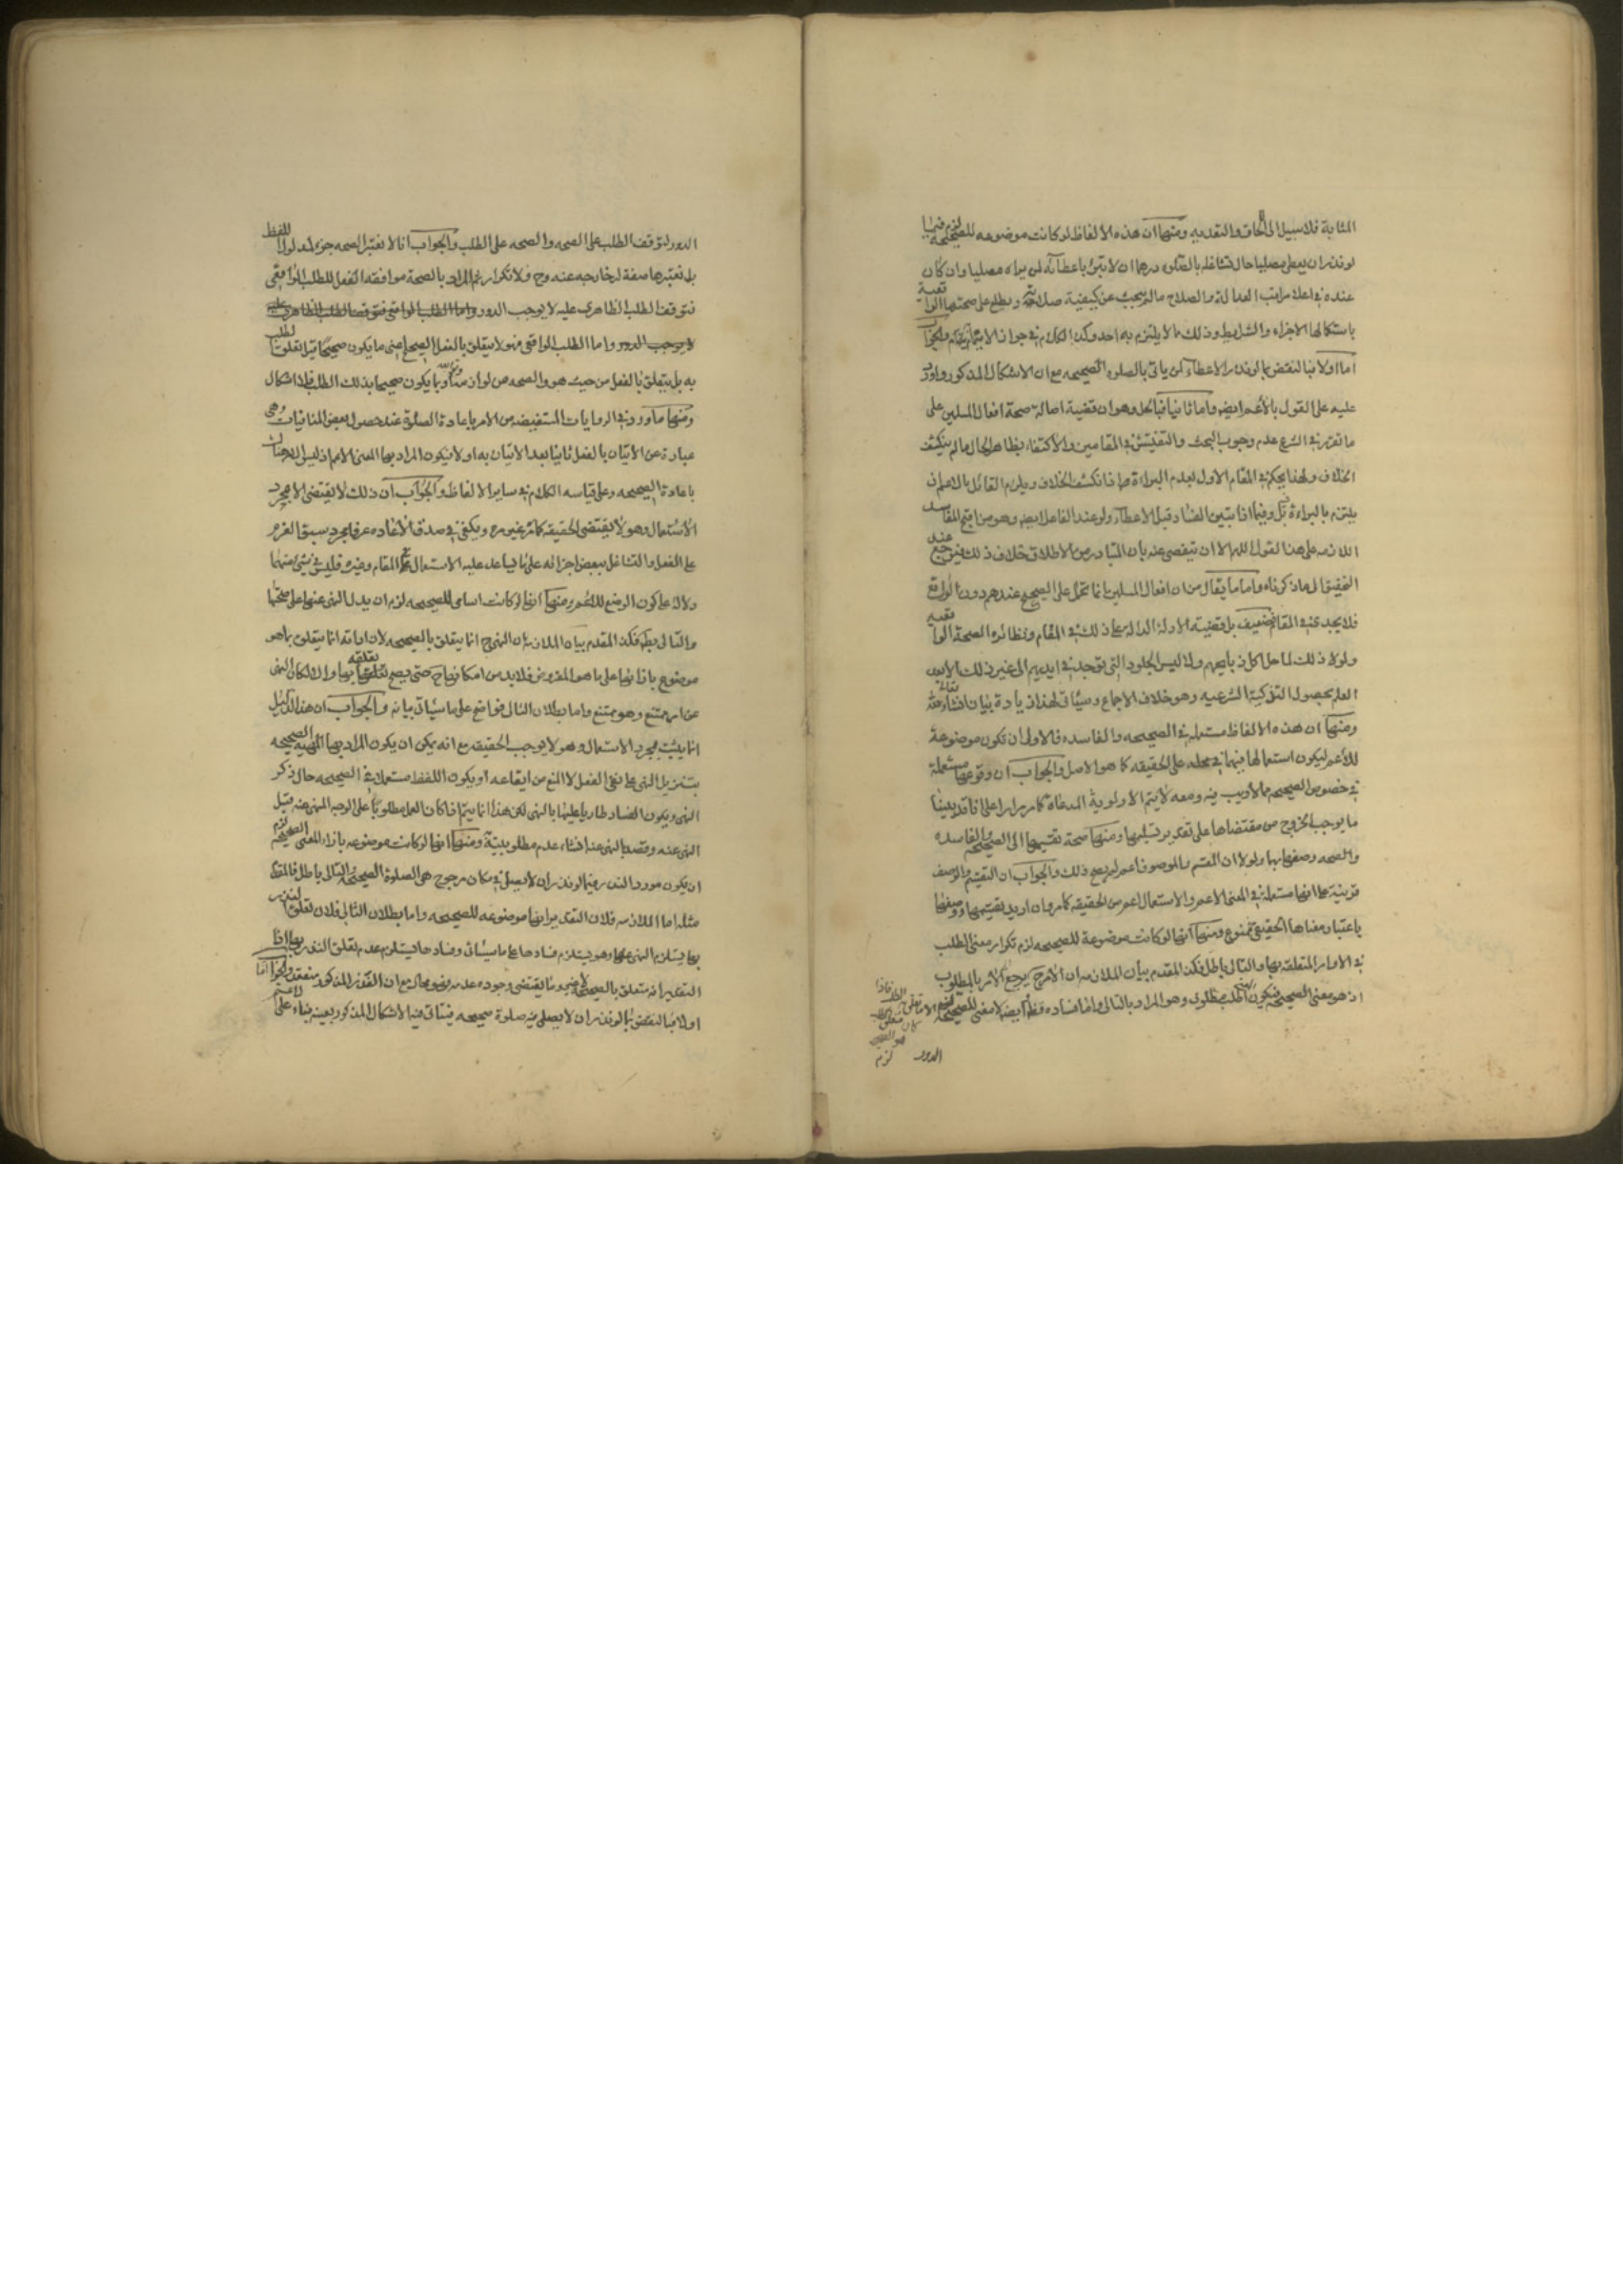 المثابة فلا سبيل الى الحاق والتعدية ومنها ان هذه الالفاظ لو كانت موضوعه للصحيحة لزم فيما
لو نذر ان يعطى مصليا حال تشاغله بالصلوة درهما ان لا تبرئ باعطائه لمن يراه مصليا وان كان
عنده في اعلا مراتب العدالة والصلاح ما لم يبحث عن كيفية صلاته ويطلع على صحتها الواقعية
باستكمالها الاجزاء والشرايط وذلك مما لا يلتزم به احد وكذا الكلام في جواز الايتمام والجواب
اما اولا فبالنقض بما لو نذر الاعطاء لمن ياتى بالصلوة الصحيحه مع ان الاشكال المذكور وارد
عليه على القول بالاعم ايض واما ثانيا فبالحل وهو ان قضية اصالة صحة افعال المسلمين على
ما تقرر في الشرع عدم وجوب البحث والتفتيش في المقامين والاكتفاء بظاهر الحال ما لم ينكشف
الخلاف ولهذا يحكم في المقام الاول بعدم البراءة اذا انكشف الخلاف ويلزم القائل بالاعم ان
يلتزم بالبراءة فيما اذا تبين الفساد قبل الاعطاء ولو عند الفاعل ايض وهو من اقبح المفاسد
اللازمه على هذا القول اللهم الا ان يتفصى عنه بان المتبادر من الاطلاق خلاف ذلك فيرجع عند
التحقيق الى ما ذكرناه واما ما يقال من ان افعال المسلمين انما تحمل على الصحيح عندهم دون الواقع
فلا يجدى في المقام فضعيف بل قضية الادلة الدالة على ذلك في المقام ونظائره الصحة الواقعيه
ولولا ذلك لما حل اكل ذبايحهم ولا لبس الجلود التى توجد في ايديهم الى غير ذلك الا بعد
العلم بحصول التذكية الشرعيه وهو خلاف الاجماع وسيأتى لهذا زيادة بيان انشاء الله تعالى
ومنها ان هذه الالفاظ مستعمله في الصحيحه والفاسده فالاولى ان تكون موضوعة
للاعم ليكون استعمالها فيهما في محله على الحقيقه كما هو الاصل والجواب ان وقوعها مستعملة
في خصوص الصحيحه مما لا ريب فيه ومعه لا يتم الاولوية المدعاة كما مر مرارا على انا قد بينا
ما يوجب الخروج من مقتضاها على تقدير تسليمها ومنها صحة تقسيمها الى الصحيحه والفاسده
والصحه وصفها بها ولولا ان المقسم والموصوف اعم لم يصح ذلك والجواب ان التقسيم والوصف
قرينة على انها مستعملة في المعنى الاعم والاستعمال اعم من الحقيقه كما مر وان اريد تقسيمها ووصفها
باعتبار معناها الحقيقى فممنوع ومنها انها لو كانت موضوعة للصحيحه لزم تكرار معنى الطلب
في الاوامر المتعلقه بها والتالى باطل فكذا المقدم بيان الملازمه ان الامر ح يرجع الى الامر بالمطلوب
اذ هو معنى الصحيحة فيكون المعنى اطلب مطلوبى وهو المراد بالتالى واما فساده فظ وايضا لا معنى للصحيحة
الدور لزم
الدور لتوقف الطلب على الصحه والصحه على الطلب والجواب انا لا نعتبر الصحه جزء لمدلول اللفظ
بل نعتبرها صفة له خارجه عنه وح فلا تكرار ثم المراد بالصحة موافقه الفعل للطلب الواقعى
فتوقف الطلب الظاهرى عليه لا يوجب الدور واما الطلب الواقعى فتوقف الطلب الظاهرى عليه
لا يوجب الدور واما الطلب الواقعى فهو لا يتعلق بالفعل الصحيح اعنى ما يكون صحيحا قبل تعلق الطلب
به بل يتعلق بالفعل من حيث هو والصحه من لوازمه وبه يكون صحيحا بذلك الطلب فلا اشكال
ومنها ما ورد في الروايات المستفيضه من الامر باعادة الصلوة عند حصول بعض المنافيات وهى
عبارة عن الاتيان بالفعل ثانيا بعد الاتيان به اولا فيكون المراد بها المعنى الاعم اذ ليس
باعادة الصحيحه وعلى قياسه الكلام في ساير الالفاظ والجواب ان ذلك لا يقتضى الا مجرد
الاستعمال وهو لا يقتضى الحقيقه كما مر غير مره ويكفى في صدق الاعاده عرفا مجرد سبق العزم
على الفعل والتشاغل ببعض اجزائه على ما يساعد عليه الاستعمال في المقام وغيره فليس في شئ منهما
دلالة على كون الوضع للاعم ومنها انها لو كانت اسامى للصحيحه لزم ان يدل النهى عنها على صحتها
والتالى بط فكذا المقدم بيان الملازمة ان النهى ح انما يتعلق بالصحيحه لان اداته انما يتعلق بما هو
موضوع بازائها على ما هو المفروض فلا بد من امكانها ح حتى يصح تعلقه بها والا لكان النهى
عن امر ممتنع وهو ممتنع واما بطلان التالى فواضح على ما سيأتى بيانه والجواب ان هذا الدليل
انما يثبت مجرد الاستعمال وهو لا يوجب الحقيقه مع انه يمكن ان يكون المراد بها المهيه الصحيحه
بتنزيل النهى على نفى الفعل لا المنع من ايقاعه او يكون اللفظ مستعملا في الصحيحه حال ذكر
النهى ويكون الفساد طاريا عليها بالنهى لكن هذا انما يتم اذا كان العمل مطلوبا على الوجه المنهى عنه قبل
النهى عنه وقصد بالنهى عنه انشاء عدم مطلوبيتة ومنها انها لو كانت موضوعه بازاء المعنى الصحيح لزم
ان يكون مورد النذر فيما لو نذر ان لا يصلى في مكان مرجوح هى الصلوة الصحيحه والتالى باطل فالمقدم
مثله اما الملازمه فلان التقدير انها موضوعه للصحيحه واما بطلان التالى فلان تعلق النذر
بها يستلزم النهى عنها وهو يستلزم فسادها على ما سيأتى وفسادها يستلزم عدم تعلق النذر بها اذ
التقدير انه متعلق بالصحيحه لا غير وما يقتضى وجوده عدمه فهو محال مع ان النذر المذكور منعقد والجواب اما
اولا فبالنقض بما لو نذر ان لا يصلى فيه صلوة صحيحه فيتأتى فيه الاشكال المذكور بعينه بناء على